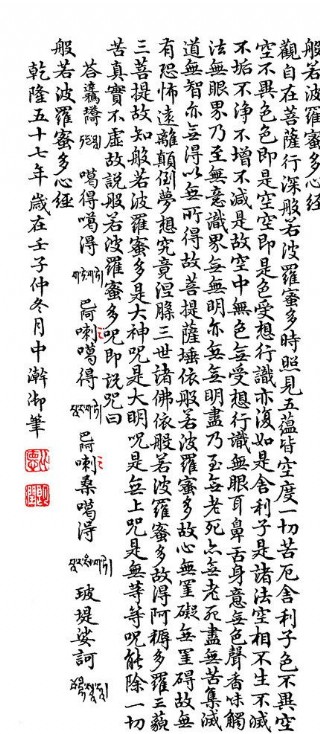 般若波羅蜜多心經
觀自在菩薩行深般若波羅蜜多時照見五蘊皆空度一切苦厄舍利子色不異空
空不異色色即是空空即是色受想行識亦復如是舍利子是諸法空相不生不滅
不垢不淨不增不減是故空中無色無受想行識無眼耳鼻舌身意無色聲香味觸
法無眼界乃至無意識界無無明亦無無明盡乃至無老死亦無老死盡無苦集滅
道無智亦無得以無所得故菩提薩埵依般若波羅蜜多故心無罣礙無罣礙故無
有恐怖遠離顛倒夢想究竟涅槃三世諸佛依般若波羅蜜多故得阿耨多羅三藐
三菩提故知般若波羅蜜多是大神咒是大明咒是無上咒是無等等咒能除一切
苦真實不虛故說般若波羅蜜多咒即說咒曰
噶得噶得 巴阿喇噶得 巴阿喇桑噶得 玻堤娑訶
般若波羅蜜多心經
乾隆五十七年歲在壬子仲冬月中澣御筆